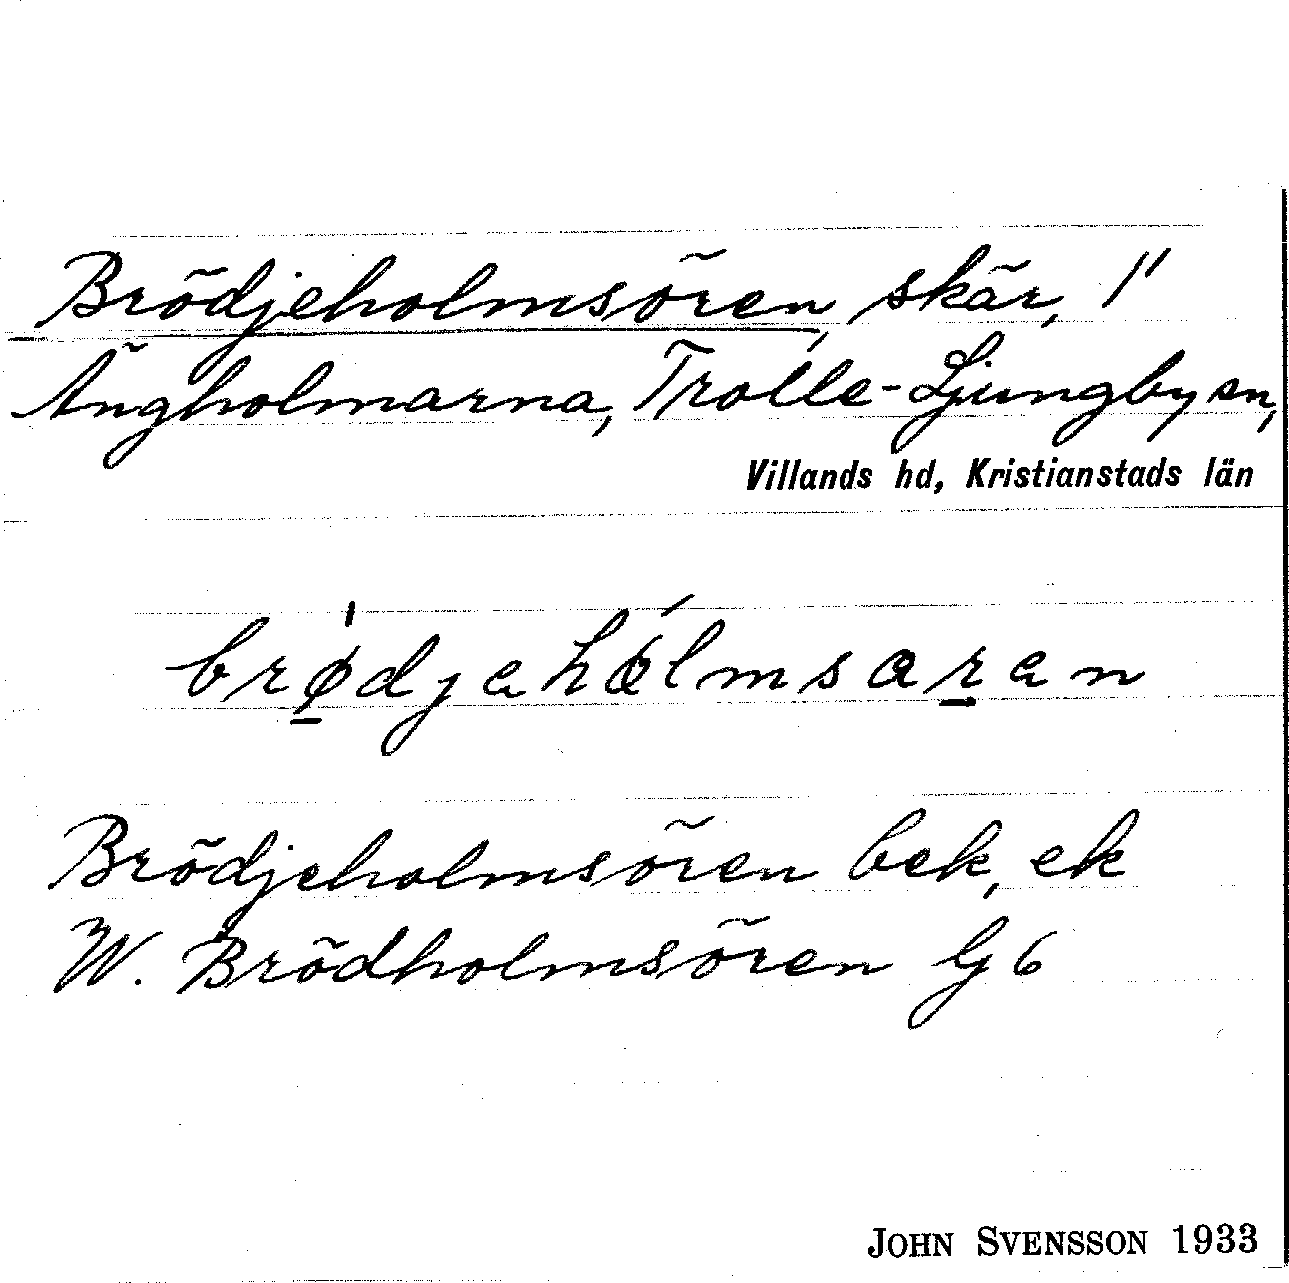 Brödjeholmsören, skär, 1'
Ängholmarna, Trolle-Ljungby sn,
Villands hd, Kristianstads län
brø̱djahólmsaṟan
Brödjeholmsören bek, ek
W. Brödholmsören G6
JOHN SVENSSON 1933